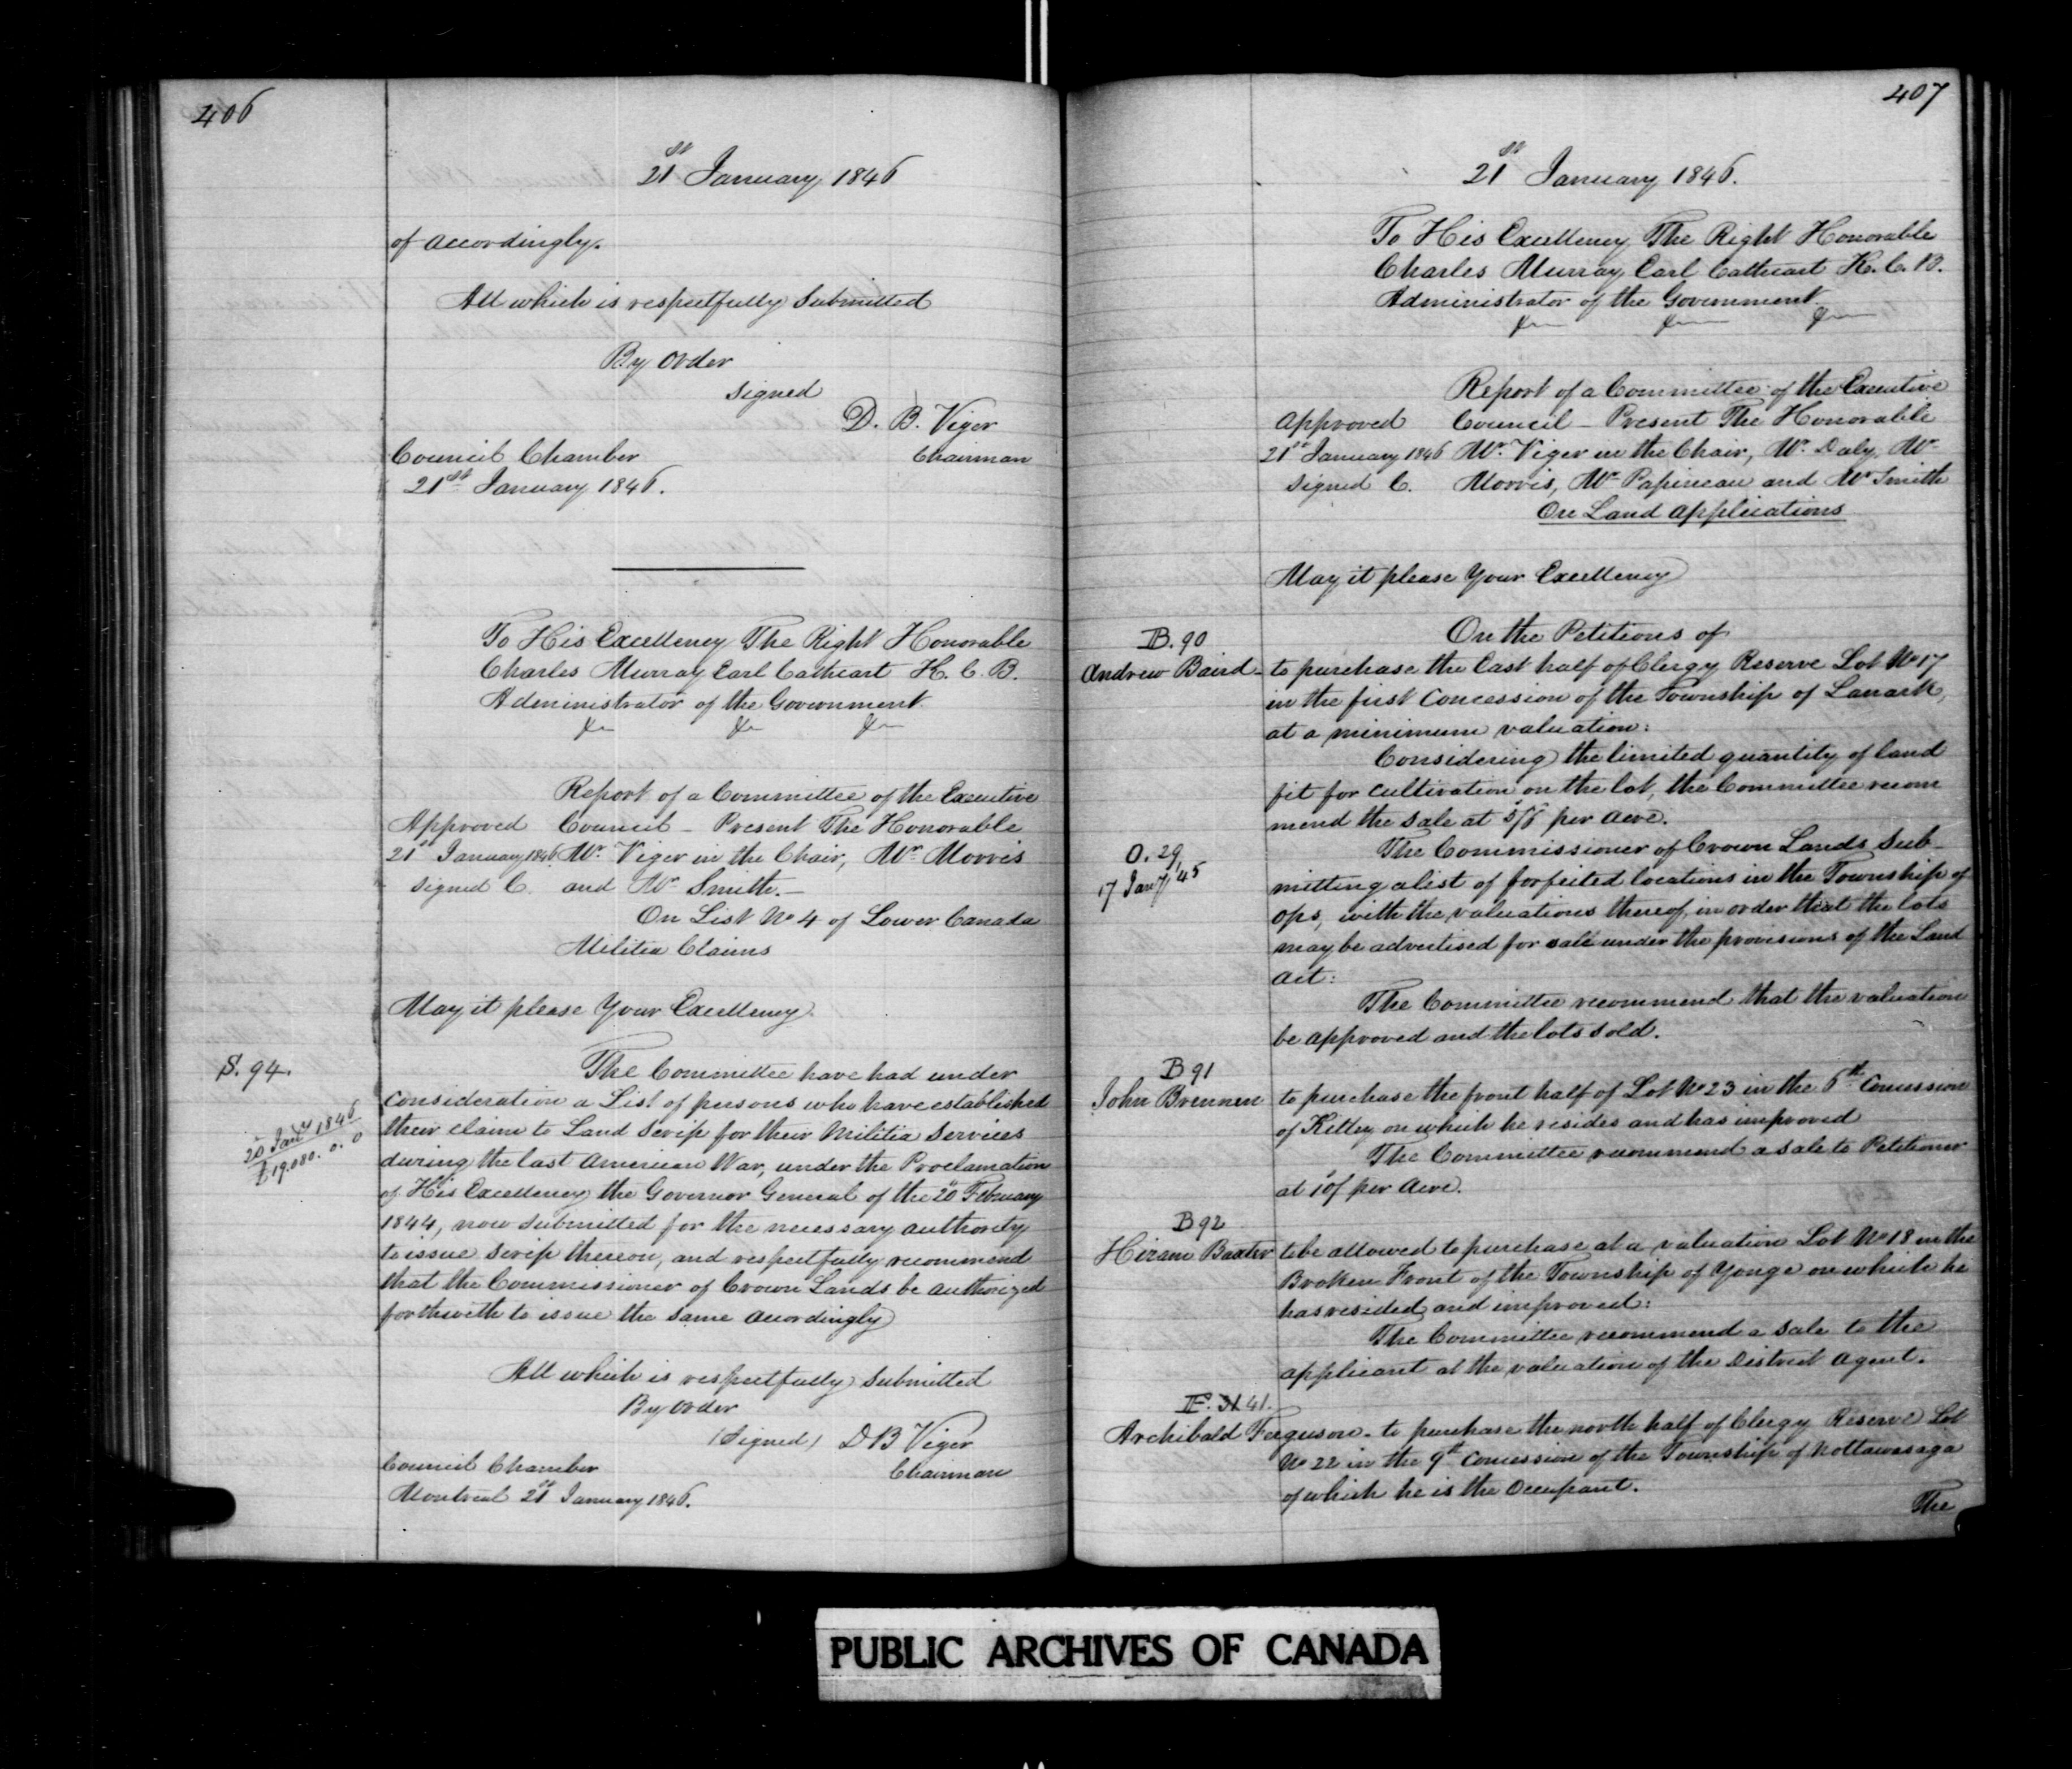 406
21st January 1846
of accordingly.
All which is respectfully submitted
By order
signed
D. B. Viger
Council Chamber Chairman
21st January 1846.
To His Excellency The Right Honorable
Charles Murray Earl Cathcart K. C. B.
Administrator of the Government
&c &c &c
Report of a Committee of the Executive
Approved Council – Present The Honorable
21st January 1846 Mr. Viger in the Chair, Mr. Morris
signed C. and Mr Smith. –
On List No 4 of Lower Canada
Militia Claims
May it please Your Excellency.
S. 94. The Committee have had under
consideration a List of persons who have established
20 Jany 1846 their claim to Land Scrip for their Militia Services
£19,080. 0. 0 during the last American War, under the Proclamation
of His Excellency the Governor General of the 20th February
1844, now submitted for the necessary authority
to issue Scrip thereon, and respectfully recommend
that the Commissioner of Crown Lands be authorized
forthwith to issue the same accordingly
All which is respectfully submitted
By order
(Signed) D B Viger
Council Chamber Chairman
Montreal 21st January 1846.
407
21st January 1846.
To His Excellency The Right Honorable
Charles Murray Earl Cathcart K. C. B.
Administrator of the Government
&c &c &c
Report of a Committee of the Executive
Approved Council – Present The Honorable
21st January 1846 Mr. Viger in the Chair, Mr. Daly, Mr
signed C. Morris, Mr Papineau and Mr Smith
On Land applications
May it please Your Excellency
B. 90 On the Petitions of
Andrew Baird – to purchase the East half of Clergy Reserve Lot No 17
in the first Concession of the Township of Lanark,
at a minimum valuation:
Considering the limited quantity of land
fit for cultivation on the lot, the Committee recom
mend the sale at 5/6 per acre.
O. 29 The Commissioner of Crown Lands sub-
17 Jany '45 mitting a list of forfeited locations in the Township of
Ops, with the valuations thereof, in order that the lots
may be advertised for sale under the provisions of the Land
Act:
The Committee recommend that the valuation
be approved and the lots sold.
B 91
John Brennen to purchase the front half of Lot No 23 in the 6th Concession
of Kitley on which he resides and has improved
The Committee recommend a sale to Petitioner
at 10/ per acre.
B 92
Hiram Baxter to be allowed to purchase at a valuation Lot No 18 in the
Broken Front of the Township of Yonge on which he
has resided and improved:
The Committee recommend a sale to the
applicant at the valuation of the District Agent.
F. 31 41.
Archibald Ferguson – to purchase the north half of Clergy Reserve Lot
No 22 in the 9th Concession of the Township of Nottawasaga
of which he is the Occupant.
The
PUBLIC ARCHIVES OF CANADA